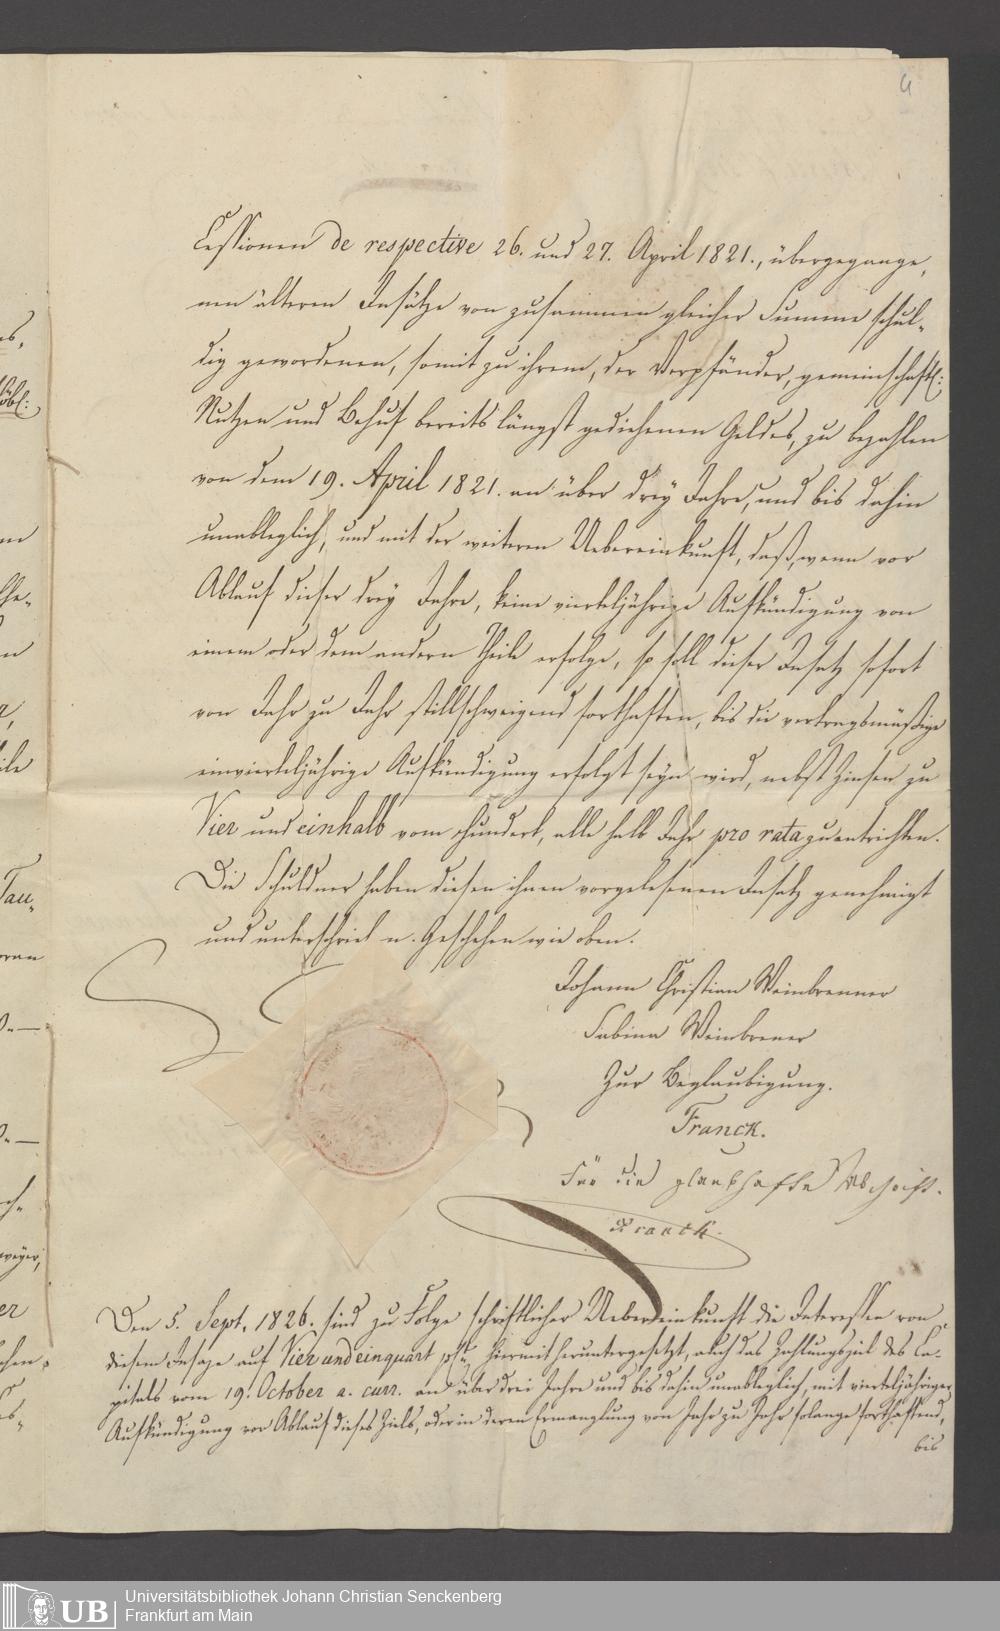 4
Cessionen de respective 26. und 27. April 1821., übergegange,
nen älteren Insätze von zusammen gleicher Summe schul-
dig gewordenen, somit zu ihrem, der Verpfänder, gemeinschaftl:
Nutzen und Behuf bereits längst gediehenen Geldes, zu bezahlen
von dem 19. April 1821. an über drey Jahre, und bis dahin
unableglich, und mit der weiteren Uebereinkunft, daß, wenn vor
Ablauf dieser drey Jahre, keine vierteljährige Aufkündigung von
einem oder dem andern Theile erfolge, so soll dieser Insatz sofort
von Jahr zu Jahr stillschweigend forthaften, bis die vertragsmäßige
einvierteljährige Aufkündigung erfolgt seyn wird, nebst Zinsen zu
Vier und einhalb vom Hundert, alle halb Jahr pro rata zu entrichten.
Die Schuldner haben diesen ihnen vorgelesenen Insatz genehmigt
und unterschrieben. Geschehen wie oben.
Johann Christian Weinbrenner
Sabina Weinbrener
Zur Beglaubigung.
Franck.
Für die glaubhafte Abschrift.
Franck.
Den 5. Sept. 1826. sind zu Folge schriftlicher Uebereinkunft die Interessen von
diesem Insaze auf Vier und einquart hiermit heruntergesetzt, auch das Zahlungsziel des Ca-
pitals vom 19. October a. curr. an über drei Jahre und bis dahin unableglich, mit vierteljähriger
Aufkündigung vor Ablauf dieses Ziels, oder in deren Ermanglung von Jahr zu Jahr solange forthaftend,
bis
UB
Universitätsbibliothek Johann Christian Senckenberg
Frankfurt am Main